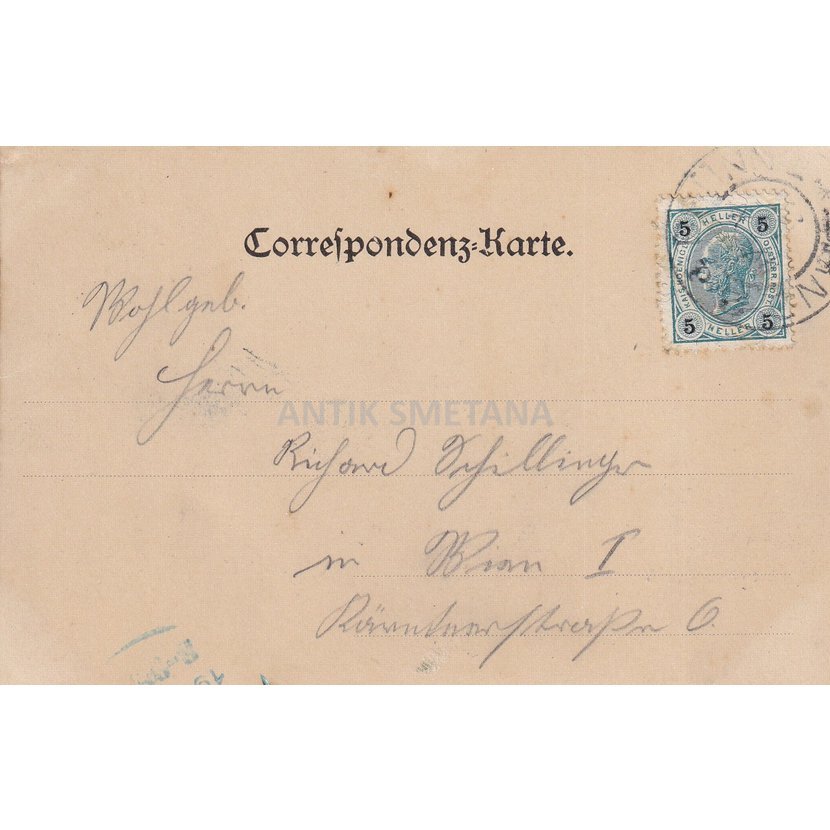 Correspondenz-Karte.
5 5
HELLER
KAIS. KOENIGL. OESTERR. POST
HELLER
5 5
Wohlgeb.
Herrn
ANTIK SMETANA
Richard Schillinger
in Wien I
Kärntnerstraße 6